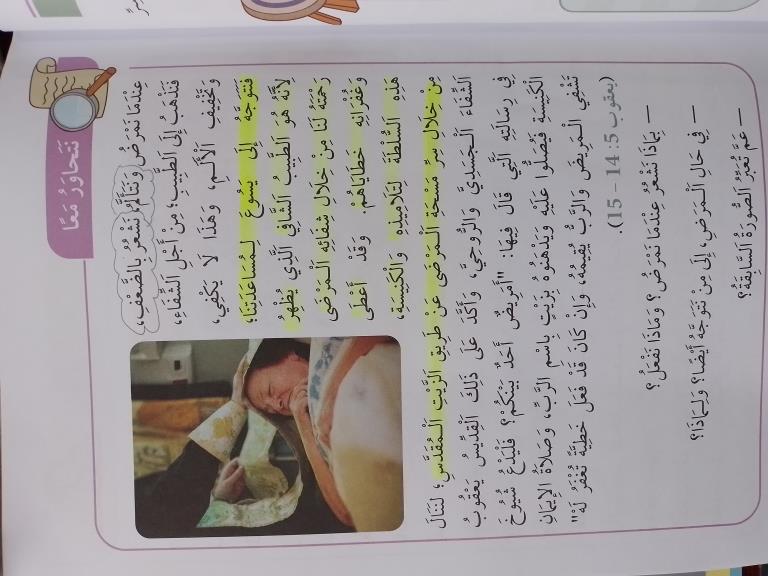 نَتَحاوَرُ مَعًا
عِنْدَمَا نَمْرَضُ وَنَتَأَلَّمُ، نَشْعُرُ بِالضَّعْفِ،
فَنَذْهَبُ إِلَى الطَّبِيبِ؛ مِنْ أَجْلِ الشِّفَاءِ،
وَتَخْفِيفِ الْأَلَمِ، وَهَذَا لَا يَكْفِي،
فَنَتَوَجَّهُ إِلَى يَسُوعَ لِمُسَاعَدَتِنَا؛
لِأَنَّهُ هُوَ الطَّبِيبُ الشَّافِي الَّذِي يُظْهِرُ
رَحْمَتَهُ لَنَا مِنْ خِلَالِ شِفَائِهِ الْمَرْضَى
وَغُفْرَانِهِ خَطَايَاهُمْ. وَقَدْ أَعْطَى
هَذِهِ السُّلْطَةَ لِتَلَامِيذِهِ وَالْكَنِيسَةِ،
مِنْ خِلَالِ سِرِّ مَسْحَةِ الْمَرْضَى عَنْ طَرِيقِ الزَّيْتِ الْمُقَدَّسِ؛ لِنَنَالَ
الشِّفَاءَ الْجَسَدِيَّ وَالرُّوحِيَّ، وَأَكَّدَ عَلَى ذَلِكَ الْقِدِّيسُ يَعْقُوبُ
فِي رِسَالَتِهِ الَّتِي قَالَ فِيهَا: "أَمَرِيضٌ أَحَدٌ بَيْنَكُمْ؟ فَلْيَدْعُ شُيُوخَ
الْكَنِيسَةِ فَيُصَلُّوا عَلَيْهِ وَيَدْهَنُوهُ بِزَيْتٍ بِاسْمِ الرَّبِّ، وَصَلَاةُ الْإِيمَانِ
تَشْفِي الْمَرِيضَ وَالرَّبُّ يُقِيمُهُ، وَإِنْ كَانَ قَدْ فَعَلَ خَطِيَّةً تُغْفَرُ لَهُ"
(يعقوب 5: 14 – 15).
— بِمَاذَا نَشْعُرُ عِنْدَمَا نَمْرَضُ؟ وَمَاذَا نَفْعَلُ؟
— فِي حَالِ الْمَرَضِ، إِلَى مِنْ نَتَوَجَّهُ أَيْضًا؟ وَلِمَاذَا؟
— عَمَّ تُعَبِّرُ الصُّورَةُ السَّابِقَةُ؟